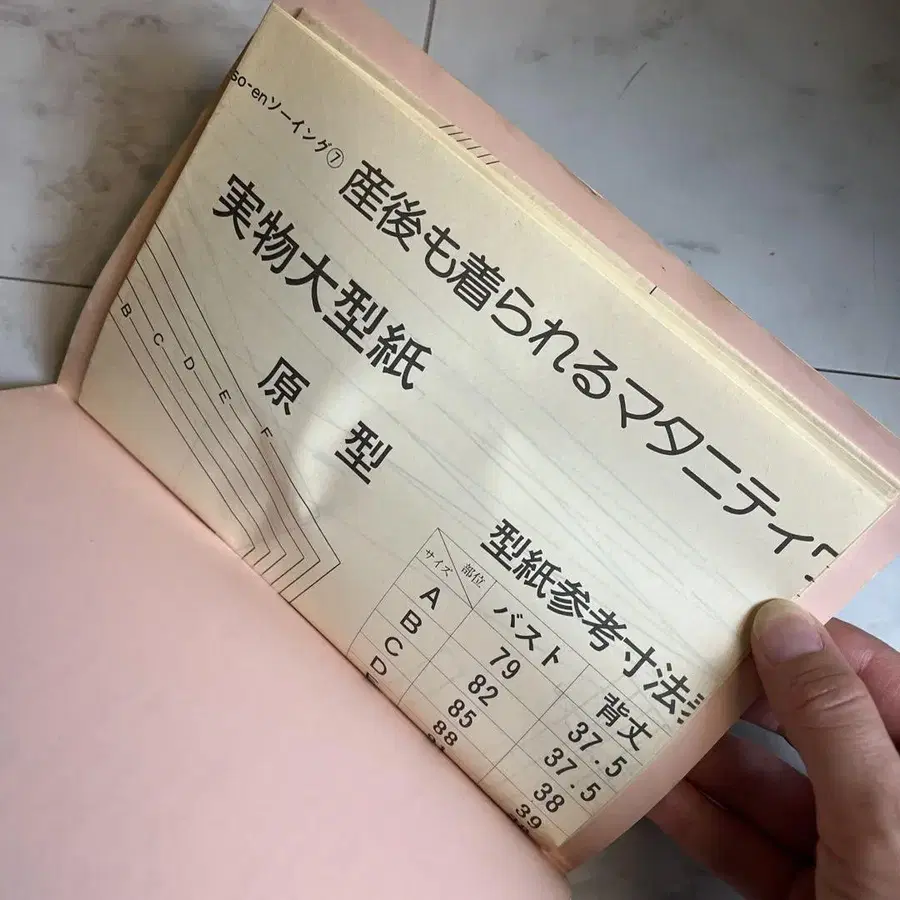 so-enソーイング⑦
産後も着られるマタニティ
実物大型紙
原型
B C D E F
型紙参考寸法
サイズ 部位 バスト 背丈
A 79 37.5
B 82 37.5
C 85 38
D 88 39